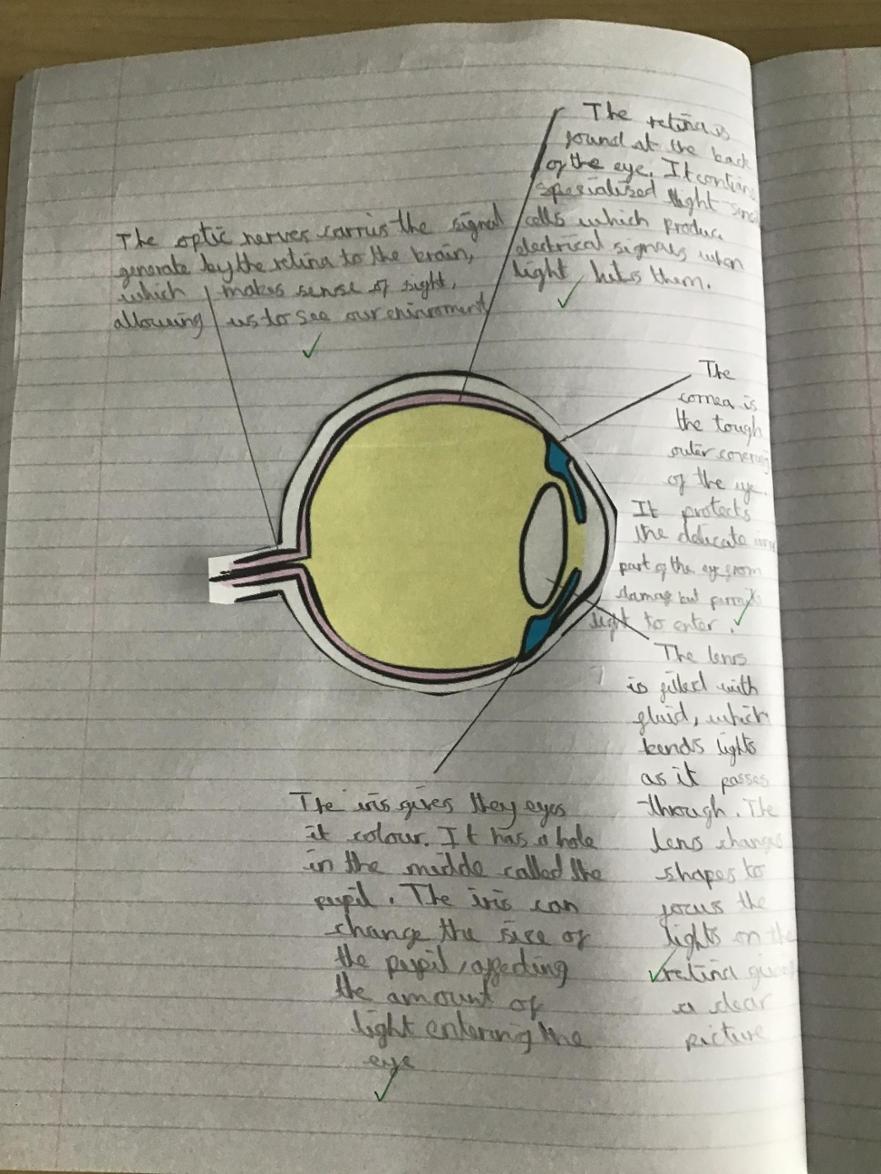 The retina is
found at the back
of the eye. It contains
specialized light
cells which produce
electrical signals when
light hits them.
The optic nerves carries the signal
generate by the retina to the brain,
which makes sense of sight,
allowing us to see our
The
cornea is
the tough
outer covering
of the eye.
It protects
the delicate
part of the eye from
damag but
light to enter.
The lens
is filled with
fluid, which
bends lights
as it passes
through. The
lens changes
shapes to
focus the
lights on the
retina gives
a clear
picture
The iris gives they eyes
it colour. It has a hole
in the middle called the
pupil. The iris can
change the size of
the pupil, affecting
the amount of
light entering the
eye